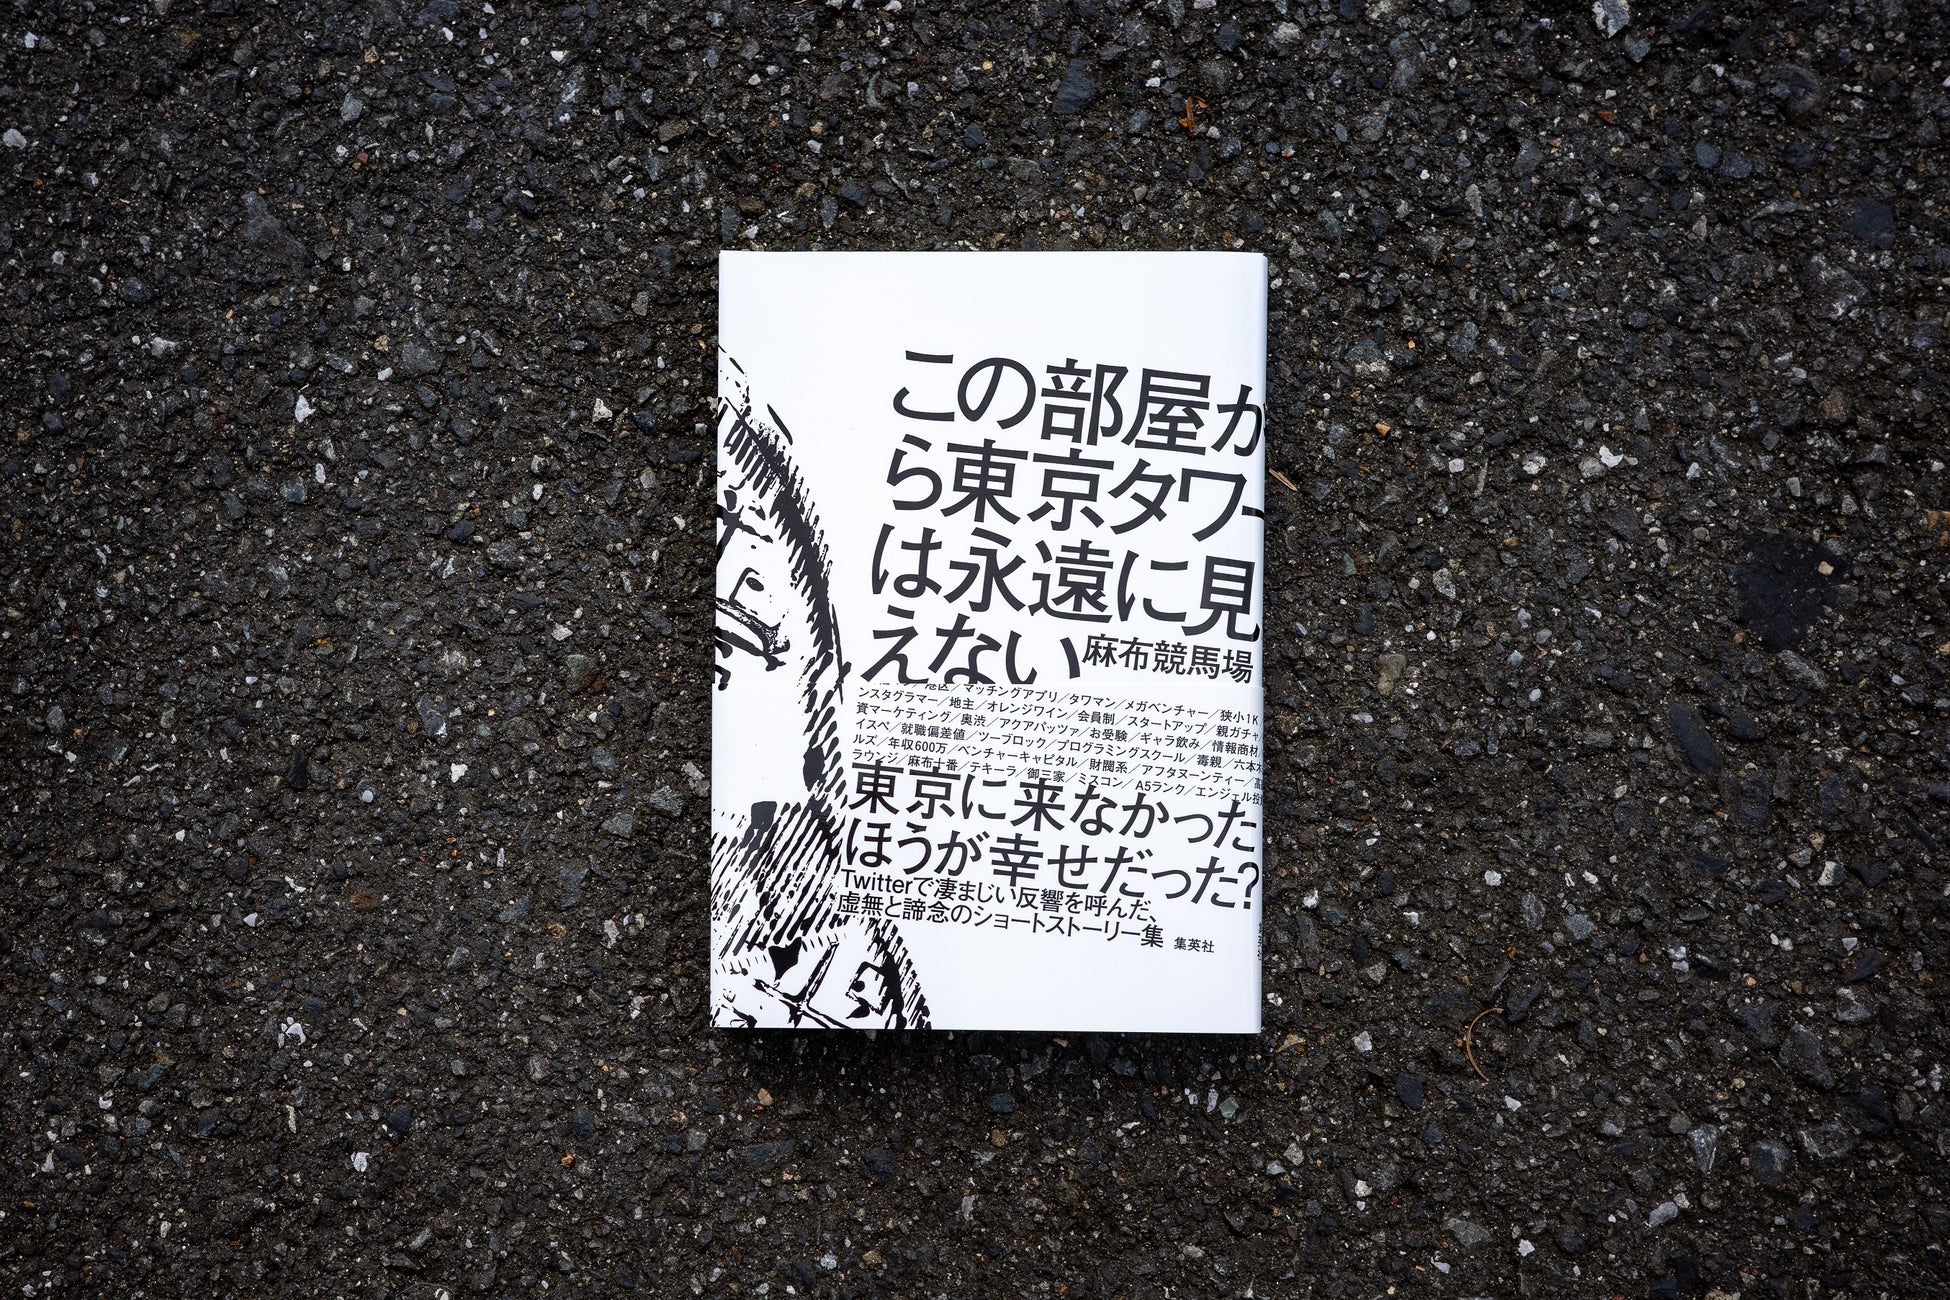 この部屋か
ら東京タワー
は永遠に見
えない
麻布競馬場
港区／マッチングアプリ／タワマン／メガベンチャー／狭小1K
ンスタグラマー／地主／オレンジワイン／会員制／スタートアップ／親ガチャ
資マーケティング／奥渋／アクアパッツァ／お受験／ギャラ飲み／情報商材
イスペ／就職偏差値／ツーブロック／プログラミングスクール／毒親／六本木
ルズ／年収600万／ベンチャーキャピタル／財閥系／アフタヌーンティー／高
ラウンジ／麻布十番／テキーラ／御三家／ミスコン／A5ランク／エンジェル投
東京に来なかった
ほうが幸せだった?
Twitterで凄まじい反響を呼んだ、
虚無と諦念のショートストーリー集
集英社